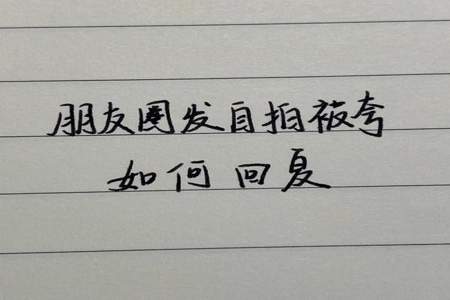 朋友圈发自拍被夸
如何回复